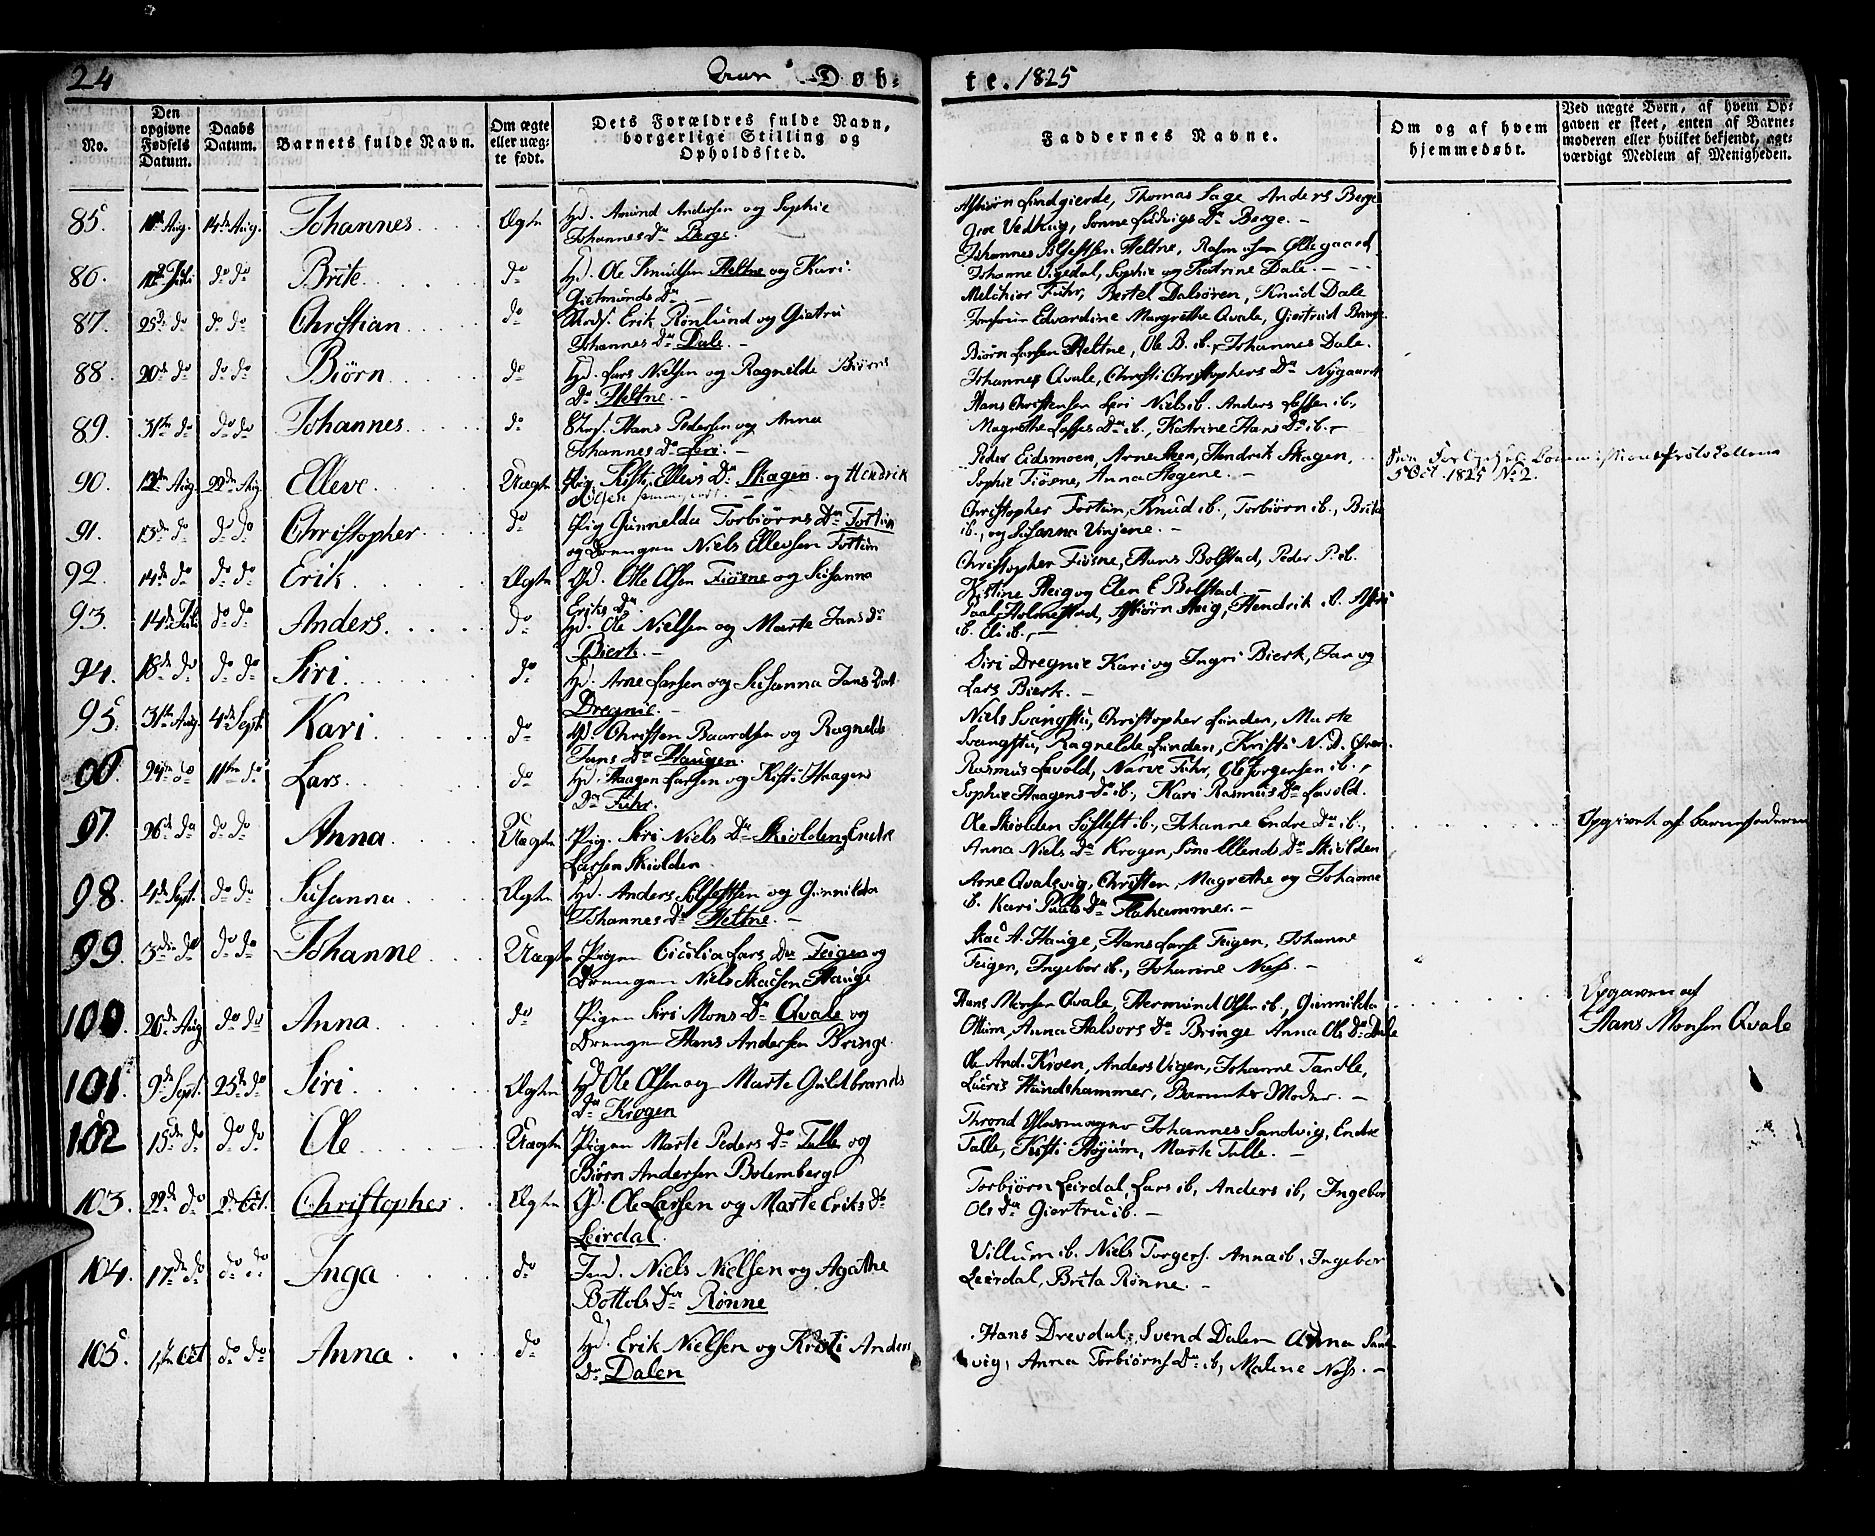 24
Døb-
te. 1825
No.
Den opgivne Fødsels Datum.
Daabs Datum.
Barnets fulde Navn.
Om ægte eller uæg-te født.
Dets Forældres fulde Navn, borgerlige Stilling og Opholdssted.
Faddernes Navne.
Om og af hvem hjemmedøbt.
Ved uægte Børn, af hvem Op-
gaven er skeet, enten af Barne-
moderen eller hvilket bekjendt, agt-
værdigt Medlem af Menigheden.
85. Aug. 14de Aug. Johannes Ægte Hd. Amund Andersen og Sophie
Johannes Dr Berge.
Asbiørn Lundgierde, Thomas Sage Anders Berge
Vedvig, Sønne Ludvigs Dr Berge. -
86. Juli do do Brite do Hd. Ole Knudsen Heltne og Kari
Gietmunds Dr -
Johannes Heltne, Ollegaard
Johanne Vigedal, Sophie og Katrine Dale. -
87. 25de do do do Christian do Erik Rønlund og Giertru
Johannes Dr Dale. -
Melchior Fuhr, Bertel Dalsøren, Knud Dale
Jomfrue Edvardine Margrethe Qvale, Giertrud Bringe
88. 20de do do do Biørn do Hd. Lars Nielsen og Ragnilde Biørns
Dr Heltne. -
Biørn Larsen Heltne, Ole B. ib., Johannes Dale.
Johannes Qvale, Christi Christophers Dr Nygaard
89. 31te do do do Johannes do Hans Pedersen og Anna
Johannes Dr Leri. -
Hans Christensen Leri Niels ib. Anders Lassen ib.,
Magrethe Lasses Dr ib., Katrine Hans Dr ib. -
90. 12te Aug. 22de Aug. Elleve Uægte Pig. Kisti Ellevs Dr Skagen og Hendrik
Peder Eidsmoen, Arne Steen, Hendrik Skagen,
Sophie Fiøsne, Anna Hegene. -
5 Oct. 1825 No 2.
91. 13de do do do Christopher do Pig Gunnilda Torbiørns Dr Fortun
og Drengen Niels Ellevsen Fortun
Christopher Fortun, Knud ib., Torbiørn ib., Brite
ib., og Susanna Vinjene. -
92. 14de do do do Erik Ægte Gd. Otte Olsen Fiøsne og Susanna
Eriks Dr.
Christopher Fiøsne, Hans Bolstad, Peder P. ib.
Kistine Steig og Elen E Bolstad -
93. 14de Juli do do Anders do Hd. Ole Nielsen og Marte Jans Dr
Bierk. -
Paal Holmestad, Asbiørn Steig, Hendrik ib. Astri
ib. Eli ib., -
94. 18de do do do Siri do Hd. Arne Larsen og Susanna Jans Dat
Dregnie. -
Siri Dregnie Kari og Ingri Bierk, Jan og
Lars Bierk. -
95. 31te Aug. 4de Sept Kari do Christen Baardsen og Ragnilde
Jans Dr Haugen.
Niels Svangstu, Christopher Lunden, Marte
Svangstu, Ragnelde Lunden, Kristi N. D.
96. 24de do 11te do Lars do Hd. Haagen Larsen og Kisti Haagens
Dr Fuhr.
Rasmus Lavold, Narve Fuhr, Ole Jørgensen ib.,
Sophie Haagens Dr ib., Kari Rasmus Dr Lavold.
97. 26de do do do Anna Uægte Pig. Siri Niels Dr Skiolden, Endre
Larsen Skiolden.
Ole Skiolden ib., Johanne Endre Dr ib.,
Anna Niels Dr Krogen, Sønne Ellends Dr Skiolden
Opgivet af Barnefaderen
98. 4de Sept. do do Susanna Ægte Hd. Anders og Gunnilda
Johannes Dr Heltne. -
Arne Qvalsvig, Christen, Magrethe og Johanne
ib. Kari Paals Dr Flahammer. -
99. 3die do do do Johanne Uægte Pigen Cicilia Lars Dr Feigen og
Drengen Niels Hauge
A. Hauge, Hans Larse Feigen, Johanne
Feigen, Ingebor ib., Johanne Næss. -
100. 26de Aug do do Anna do Pigen Siri Mons Dr Qvale og
Drengen Hans Andersen Bringe
Hans Monsen Qvale, Hermund Olsen ib., Gunnilda
Ottum, Anna Halvors Dr Bringe Anna Ols Dr Dale
Opgaven af
Hans Monsen Qvale
101. 9de Sept. 25de do Siri Ægte Hd Ole Olsen og Marte Guldbrands
Dr Krogen
Ole And. Kroen, Anders Vigen, Johanne Tandle,
Hundshammer, Barnets Moder. -
102 15de do do do Ole Uægte Pigen Marte Peders Dr Talle og
Biørn Andersen Bolemberg
Thrond Johannes Sandvig, Endre
Talle, Kisti Høyum, Marte Talle. -
103. 22de do 2de Oct. Christopher Ægte Gd Ole Larsen og Marte Eriks Dr
Leirdal.
Torbiørn Leirdal, Lars ib, Anders ib, Ingebor
Ols Dr Giertru ib. -
104. 17de do do do Inga do Niels Nielsen og Agathe
Bottols Dr Rønne
Villum ib. Niels Torgers. Anna ib, Ingebor
Leirdal, Brita Rønne. -
105. 1ste Oct do do Anna do Hd. Erik Nielsen og Kristi Anders
Dr Dalen
Hans Drevdal, Svend Dalen Anna Sand-
vig, Anna Torbiørns Dr ib, Malene Næss. -